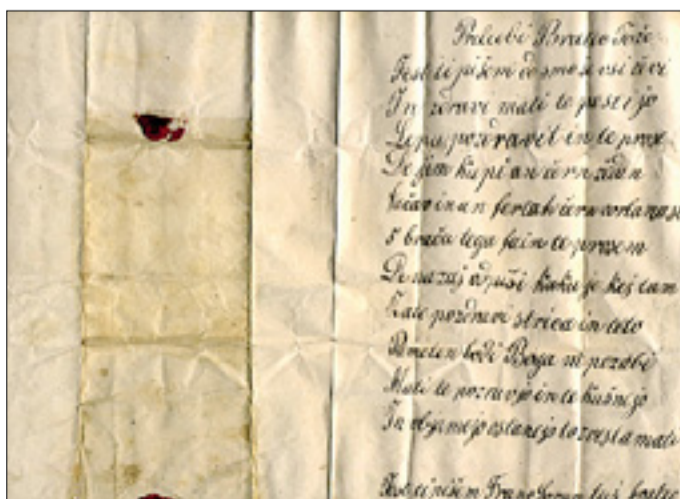 Prelebi Bratec Jože
Jest ti pišem do smo še vsi živi
In zdravi mati te pest i jo
Lepu pozdravit in te prose
De jim kupi an
in an fertah čern
5 braču tega fain te prosem
De nazaj odpiši kaku je kej tam
Kate pozdravi strica in teto
Pameten bodi Boga ni pozabi
Mati te pozravjo in te kušnejo
In objemejo ostanejo to zvesta mati
Jest ti pišem Franc